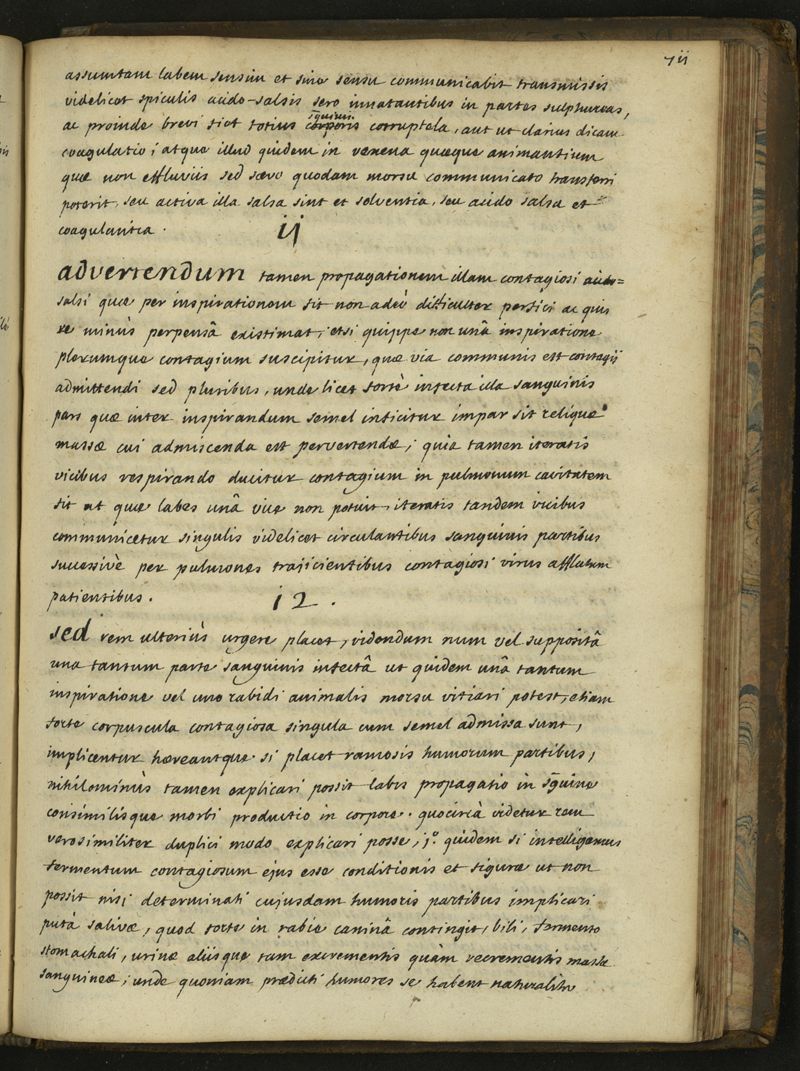 711
assumtam labem sensim et sine sensu communicabit transmissis
videlicet spiculis acido-salsis sero innatantibus in partes sulphureas,
ac proinde brevi fiet totius sguinis corporis corruptela, aut ut clarius dicam
coagulatio; atque illud quidem in venena quæque animantium
quæ non effluviis sed sævo quodam morsu communicato transferri
poterit, seu activa illa salsa sint et solventia, seu acido salsa et
coagulantia.
11
advertendum tamen propagationem illam contagiosi acido=
salsi quæ per inspirationem fit non adeò difficulter perfici ac quis
re minùs perpensâ existimat; etsi quippe non unâ inspiratione
plerumque contagium suscipitur, quæ via communis est contagii
admittendi sed pluribus, unde licet fortè infecta illa sanguinis
pars quæ inter inspirandum semel inficitur impar sit reliquæ
massæ cui admiscenda est pervertendæ; quia tamen iteratis
vicibus respirando ducitur contagium in pulmonum cavitatem
fit ut quæ labes unâ vice non potuit, iteratis tandem vicibus
communicetur singulis videlicet circulantibus sanguinis partibus
successivè per pulmones trajicientibus contagiosi virus afflatum
patientibus.
12.
sed rem ulteriùs urgere placet, videndum num vel suppositâ
una tantum parte sanguinis infectâ ut quidem unâ tantum
inspiratione vel uno rabidi animalis morsu vitiari potest, etiam
forte corpuscula contagiosa singula cum semel admissa sunt,
implicentur hæreantque si placet ramosis humorum partibus,
nihilominùs tamen explicari possit labis propagatio in sguine
consimilisque morbi productio in corpore. quocircà videtur rem
verosimiliter duplici modo explicari posse, 1º. quidem si intelligamus
fermentum contagiosum ejus esse conditionis et figuræ ut non
possit nisi determinati cujusdam humoris partibus implicari
putà salivæ, quod forte in rabie caninâ contingit, bili, fermento
stomachali, urinæ aliisque tam excrementis quàm recrementis massæ
sanguineæ; unde quoniam prædicti humores se habent naturaliter